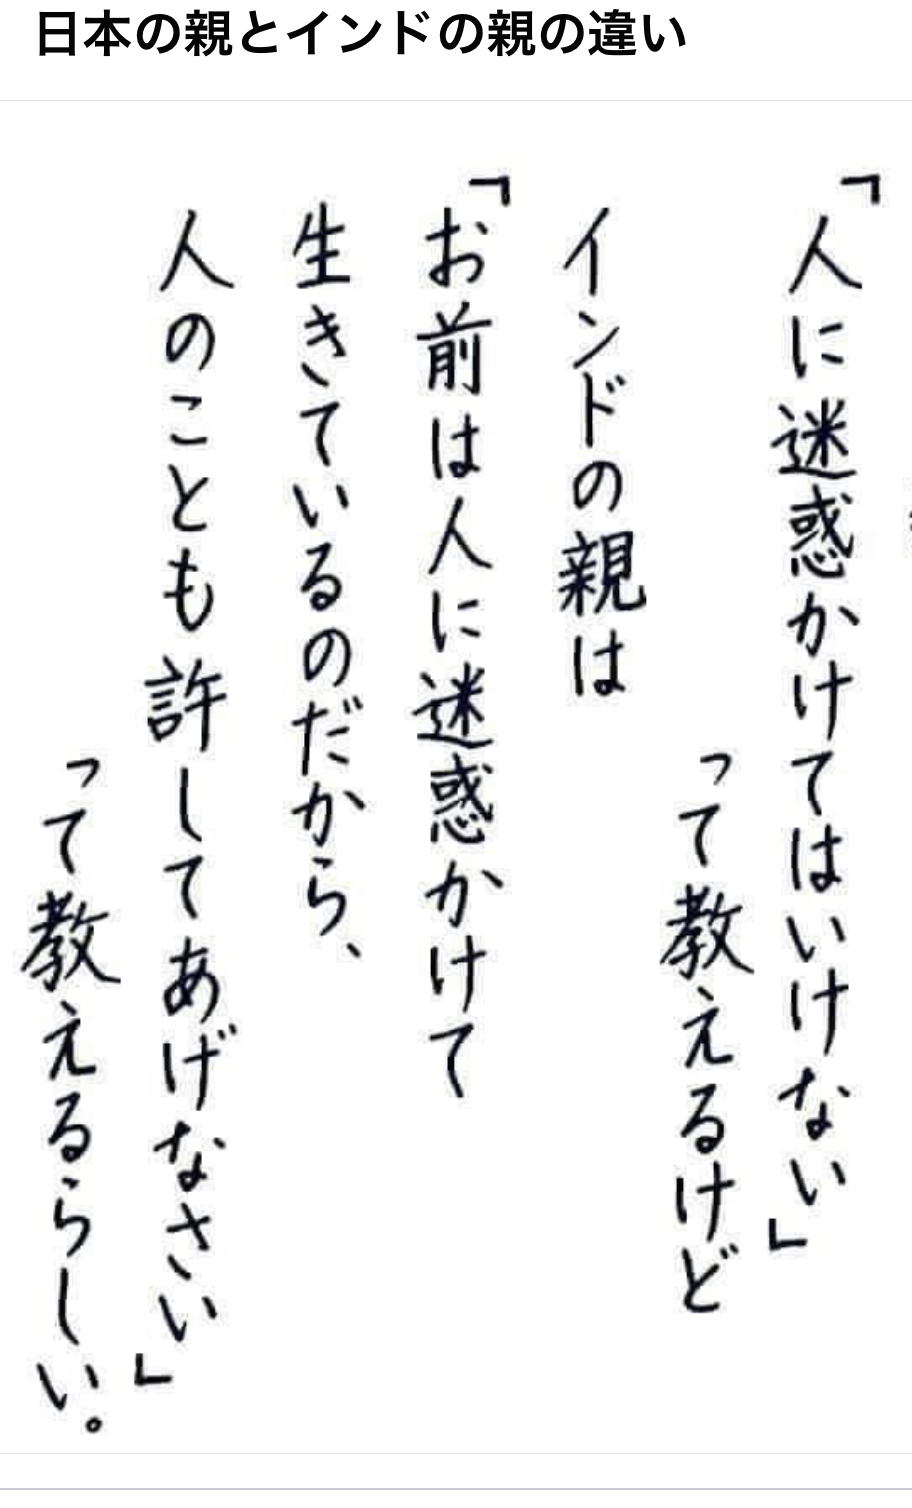 日本の親とインドの親の違い
「人に迷惑かけてはいけない」
って教えるけど
インドの親は
「お前は人に迷惑かけて
生きているのだから、
人のことも許してあげなさい」
って教えるらしい。